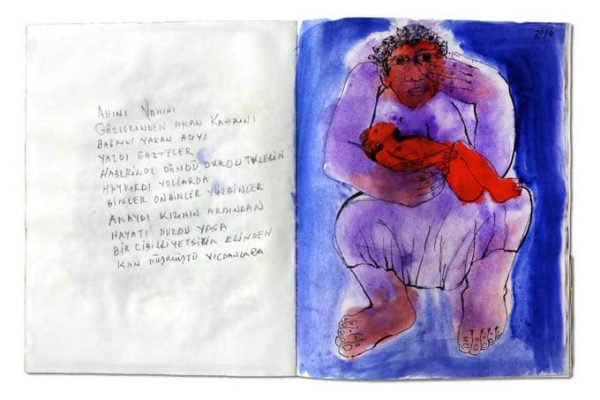 AHINI VAHINI
GÖZLERİNDEN AKAN KAHRINI
BAĞRINI YAKAN ACIYI
YAZDI GAZTELER
HABERİNDE DÖNDÜ DURDU
HAYKIRDI YOLLARDA
BİNLER ONBİNLER YÜZBİNLER
ANAYDI KIZININ ARDINDAN
HAYATI DURDU YASA
BİR CİBİLLİYETSİZİN ELİNDEN
KAN DÜŞMÜŞTÜ VİCDANLARA